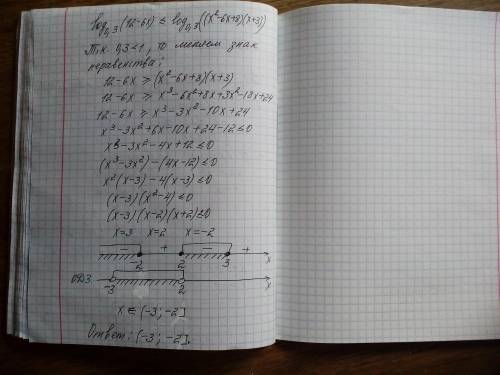 log₀,₃(12-6x) ≤ log₀,₃((x²-6x+8)(x+3))
Т.к. 0,3<1, то меняем знак
неравенства:
12-6x ≥ (x²-6x+8)(x+3)
12-6x ≥ x³-6x²+8x+3x²-18x+24
12-6x ≥ x³-3x²-10x+24
x³-3x²+6x-10x+24-12≤0
x³-3x²-4x+12≤0
(x³-3x²)-(4x-12)≤0
x²(x-3)-4(x-3)≤0
(x-3)(x²-4)≤0
(x-3)(x-2)(x+2)≤0
x=3 x=2 x=-2
- + - +
-2 2 3 x
ОДЗ -3 2 x
x ∈ (-3; -2]
Ответ: (-3; -2].